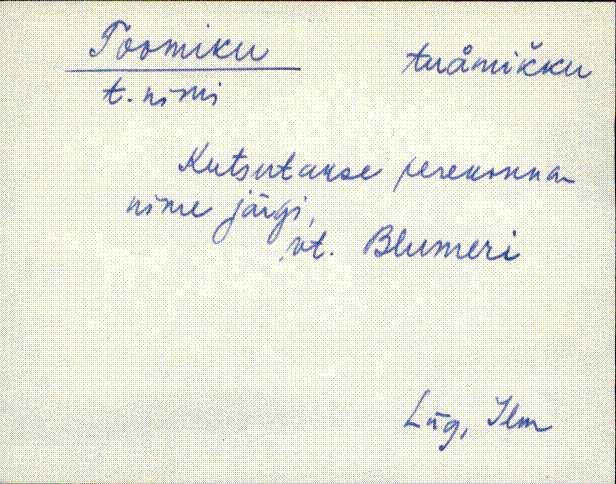 Toomiku tuåmikku
t. nimi
Kutsutakse perekonna
nime järgi,
vt. Blumeri
Lüg, Ilm